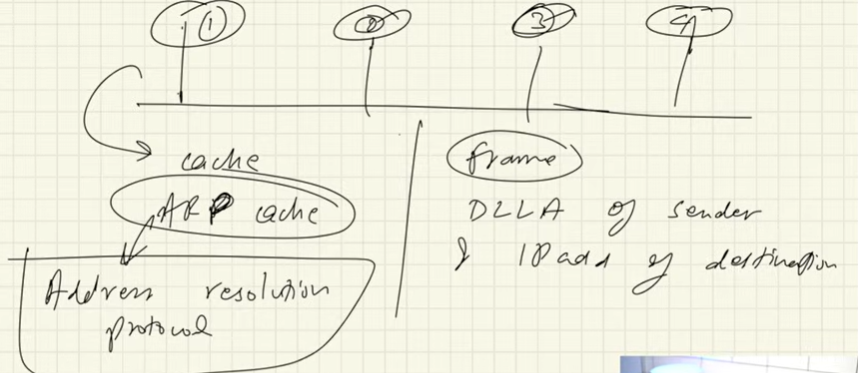 1 2 3 4
cache
ARP cache
Address resolution
protocol
frame
DLLA of sender
& IP add of destination